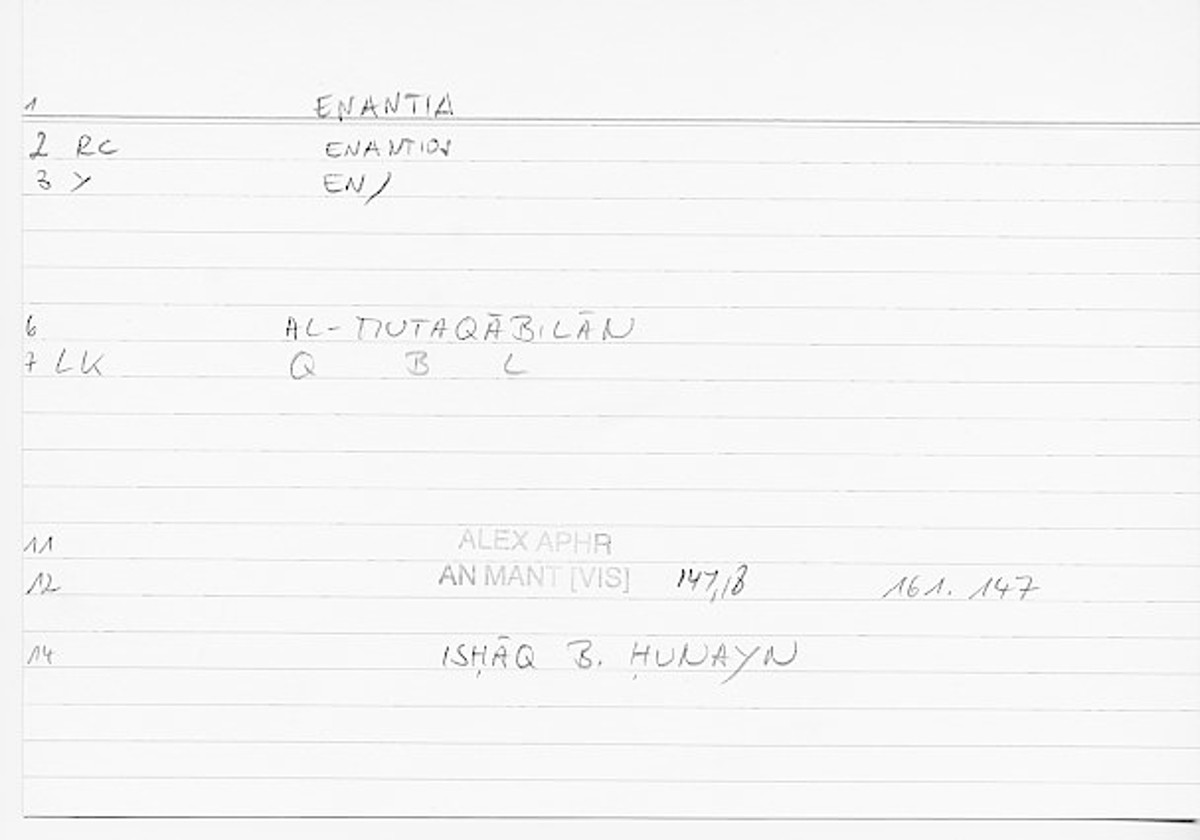 1 ENANTIA
2 RC ENANTIOS
3 Y EN)
6 AL-MUTAQĀBILĀN
7 LK Q B L
11 ALEX APHR
12 AN MANT [VIS] 147,18 161. 147
14 ISḤĀQ B. ḤUNAYN